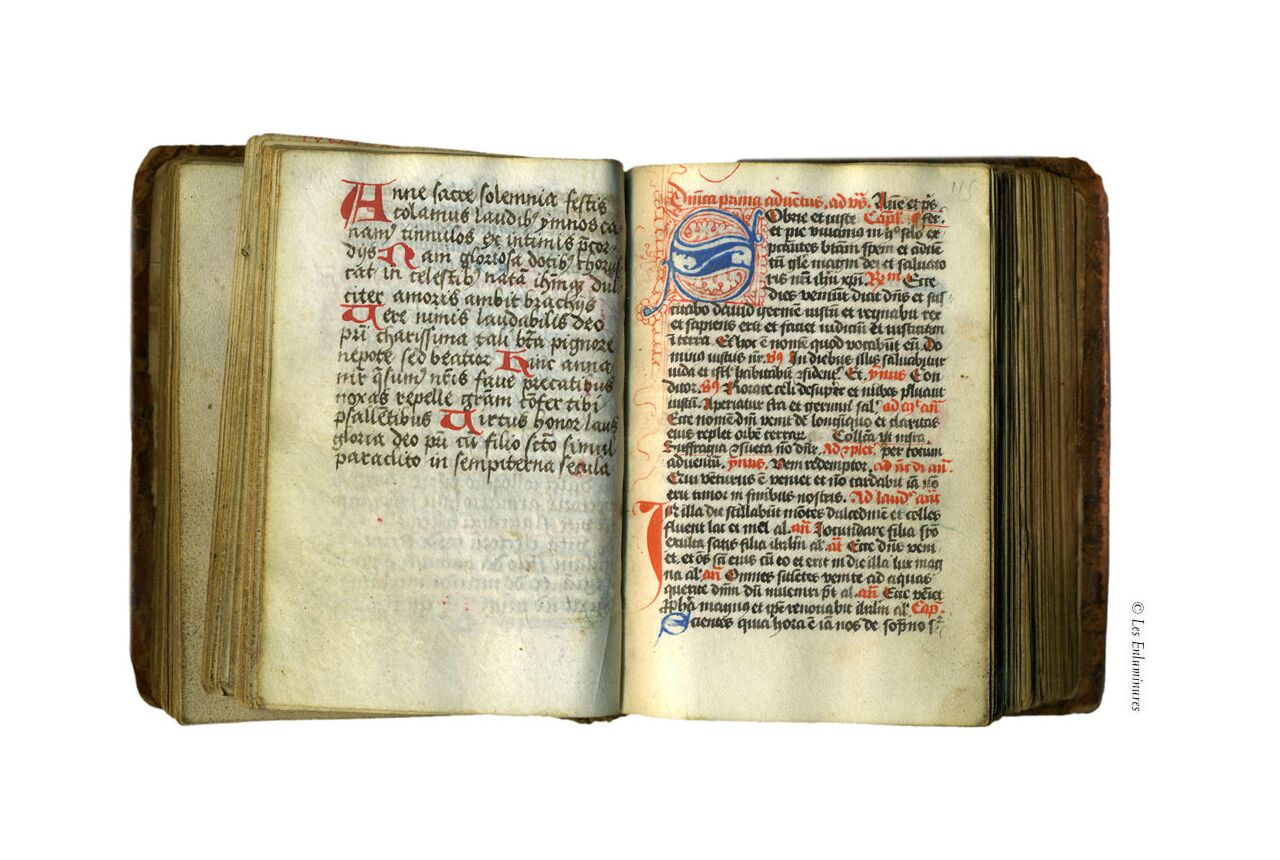 Anne sacre solemnia festis
colamus laudibꝰ ymnos ca
nam tinnulos ex intimis p̄cor
dijs Nam gloriosa dotibꝰ choruſ
cat in celestibꝰ natā ihmqꝫ dul
citer amoris ambit brachijs
Vere nimis laudabilis deo
pr̄i charissima tali bt̄a pignore
nepote sed beatior Hinc anna
mr̄ q̄sumꝰ nr̄is faue precatibus
noxas repelle gram cōfer tibi
psallentibus Virtus honor laus
gloria deo pr̄i cū filio sctō simul
paraclito in sempiterna secula
115
Dn̄ica prima aduētus, ad vꝰ.
Sobrie et iuste Capl̄
et pie viuamus in hꝰ sc̄lo ex
pectantes btām spem et adue
tū glē magni dei et saluato
ris nr̄i ihu xp̄i. Rm̄ Ecce
dies veniūt dicit dn̄s et sus
citabo dauid germē iustū et regnabit rex
et sapiens erit et faciet iudiciū et iusticiam
ī terra. Et hoc ē nomē quod vocabūt eū. Do
minus iustus nr̄. Vꝰ In diebus illis saluabitur
iuda et isrl̄ habitabit 9fident̄. Et. ymnus Con
ditor. Vꝰ Rorate celi desuper et nubes pluant
iustū. Aperiatur trā et germin̄ sal̄.
Ecce nomē dn̄i venit de longinquo et claritas
eius replet orbē terrarꝫ. Collcā vt infra.
Suffragia 9sueta nō dn̄r. Ad 9plet̄. per totum
aduentū. ymus. Veni redemptor.
Qui venturus ē veniet et nō tardabit iā nō
erit timor in finibus nostris. Ad laudꝰ
In illa die stillabūt mōtes dulcedinē et colles
fluent lac et mel al̄. an̄ Iocundare filia syō
exulta satis filia ihrlm̄ al̄. an̄ Ecce dn̄s veni
et, et oēs sc̄i eius cū eo et erit in die illa lux mag
na al̄ an̄ Omnes sicientes venite ad aquas
querite dn̄m dū inueniri pt̄ al̄. an̄ Ecce veniet
ꝓpha magnus et ipē renouabit ihrlm̄ al̄ Cap̄.
Scientes quia hora ē iā nos de sopno
© Les Enluminures